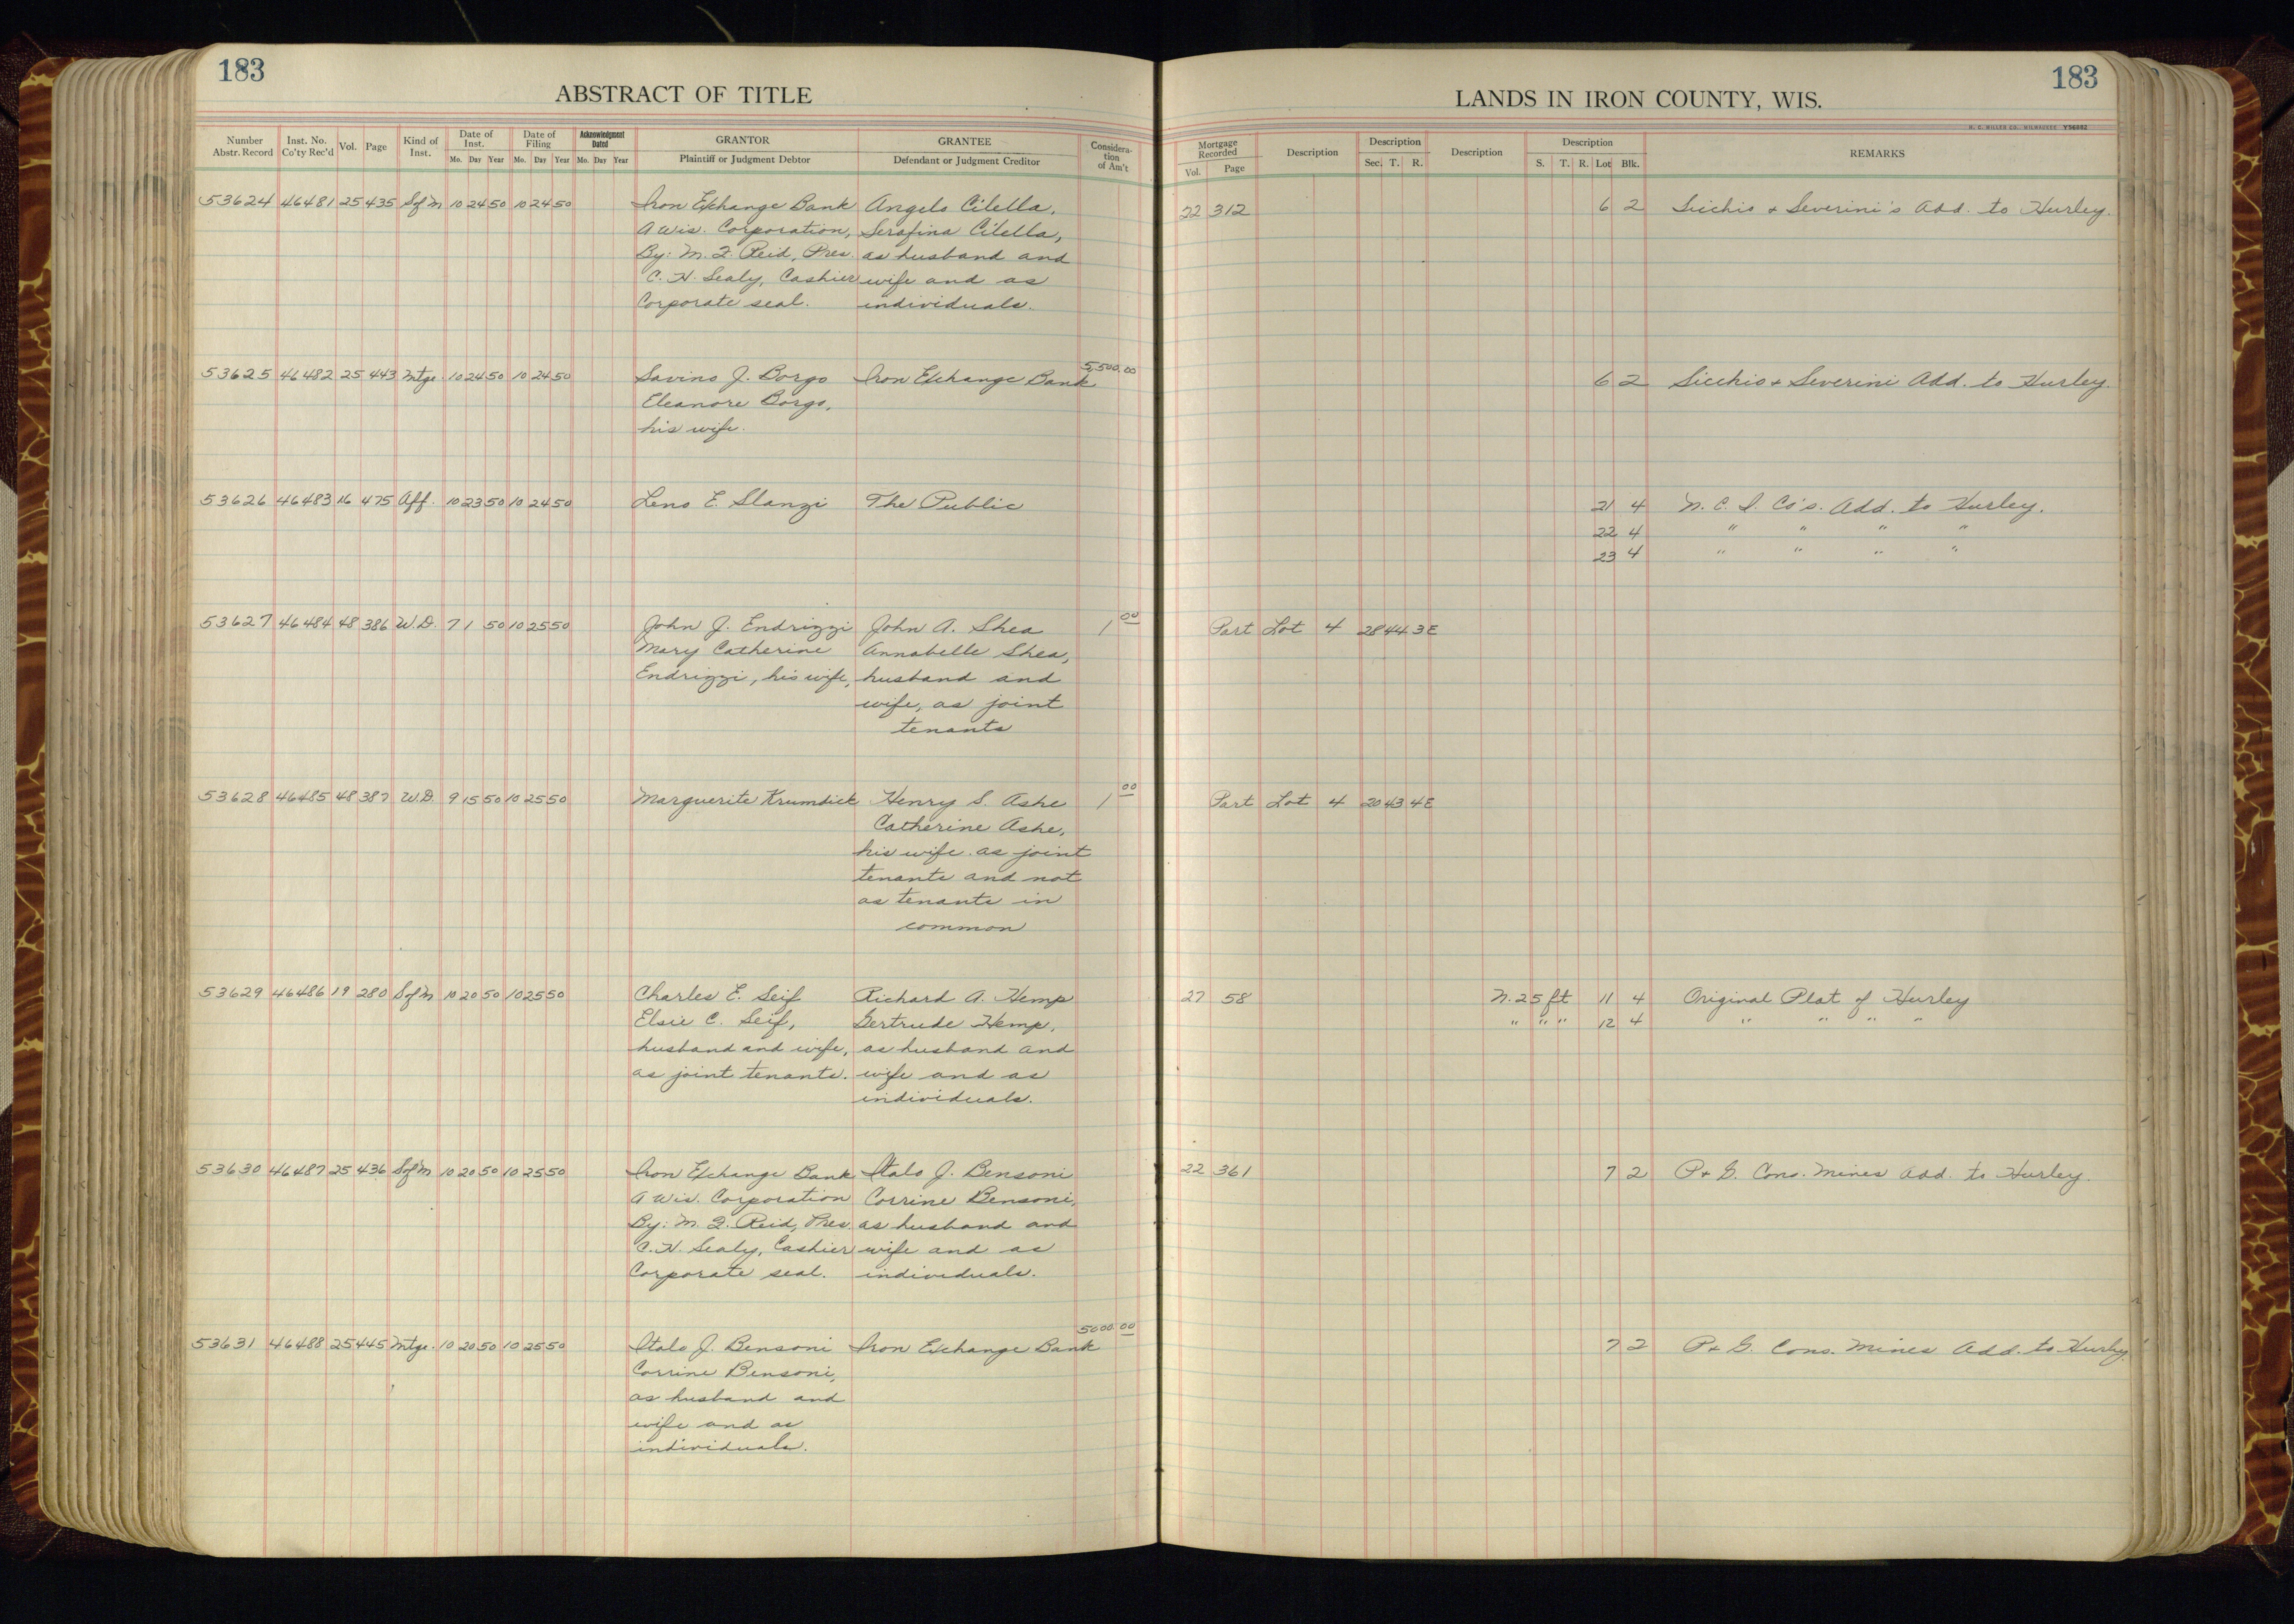 183
183
ABSTRACT OF TITLE
LANDS IN IRON COUNTY, WIS.
H. C. MILLER CO., MILWAUKEE Y56862
Number Abstr. Record Inst. No. Co'ty Rec'd Vol. Page Kind of Inst. Date of Inst. Mo. Day Year Date of Filing Mo. Day Year Acknowledgment Dated Mo. Day Year GRANTOR Plaintiff or Judgment Debtor GRANTEE Defendant or Judgment Creditor Consideration of Am't
Mortgage Recorded Vol. Page Description Description Sec. T. R. Description Description S. T. R. Lot Blk. REMARKS
53624 46481 25 435 Sofm 10 24 50 10 24 50 Iron Exchange Bank Angelo Cilella, 22 312 6 2 Sicchio & Severini's Add. to Hurley.
A Wis. Corporation, Serafina Cilella,
By: M. Q. Reid, Pres. as husband and
C. H. Sealy, Cashier wife and as
Corporate seal. individuals.
53625 46482 25 443 Mtge. 10 24 50 10 24 50 Savino J. Borgo Iron Exchange Bank 5,500.00 6 2 Sicchio & Severini Add. to Hurley.
Eleanore Borgo,
his wife.
53626 46483 16 475 Aff. 10 23 50 10 24 50 Leno E. Slanzi The Public 21 4 N. C. I. Co's. Add. to Hurley.
22 4 " " " "
23 4 " " " "
53627 46484 48 386 W.D. 7 1 50 10 25 50 John J. Endrizzi John A. Shea 1 00 Part Lot 4 28 44 3E
Mary Catherine Annabelle Shea,
Endrizzi, his wife, husband and
wife, as joint
tenants
53628 46485 48 387 W.D. 9 15 50 10 25 50 Marguerite Krumdick Henry S. Ashe 1 00 Part Lot 4 20 43 4E
Catherine Ashe,
his wife as joint
tenants and not
as tenants in
common
53629 46486 19 280 Sofm 10 20 50 10 25 50 Charles E. Seif Richard A. Hemp 27 58 N. 25 ft 11 4 Original Plat of Hurley
Elsie C. Seif, Gertrude Hemp, " " " 12 4 " " " "
husband and wife, as husband and
as joint tenants. wife and as
individuals.
53630 46487 25 436 Sofm 10 20 50 10 25 50 Iron Exchange Bank Italo J. Bensoni 22 361 7 2 P & G. Cons. Mines Add. to Hurley.
A Wis. Corporation Corrine Bensoni,
By: M. Q. Reid, Pres. as husband and
C. H. Sealy, Cashier wife and as
Corporate seal. individuals.
53631 46488 25 445 Mtge. 10 20 50 10 25 50 Italo J. Bensoni Iron Exchange Bank 5000.00 7 2 P & G. Cons. Mines Add. to Hurley.
Corrine Bensoni,
as husband and
wife and as
individuals.